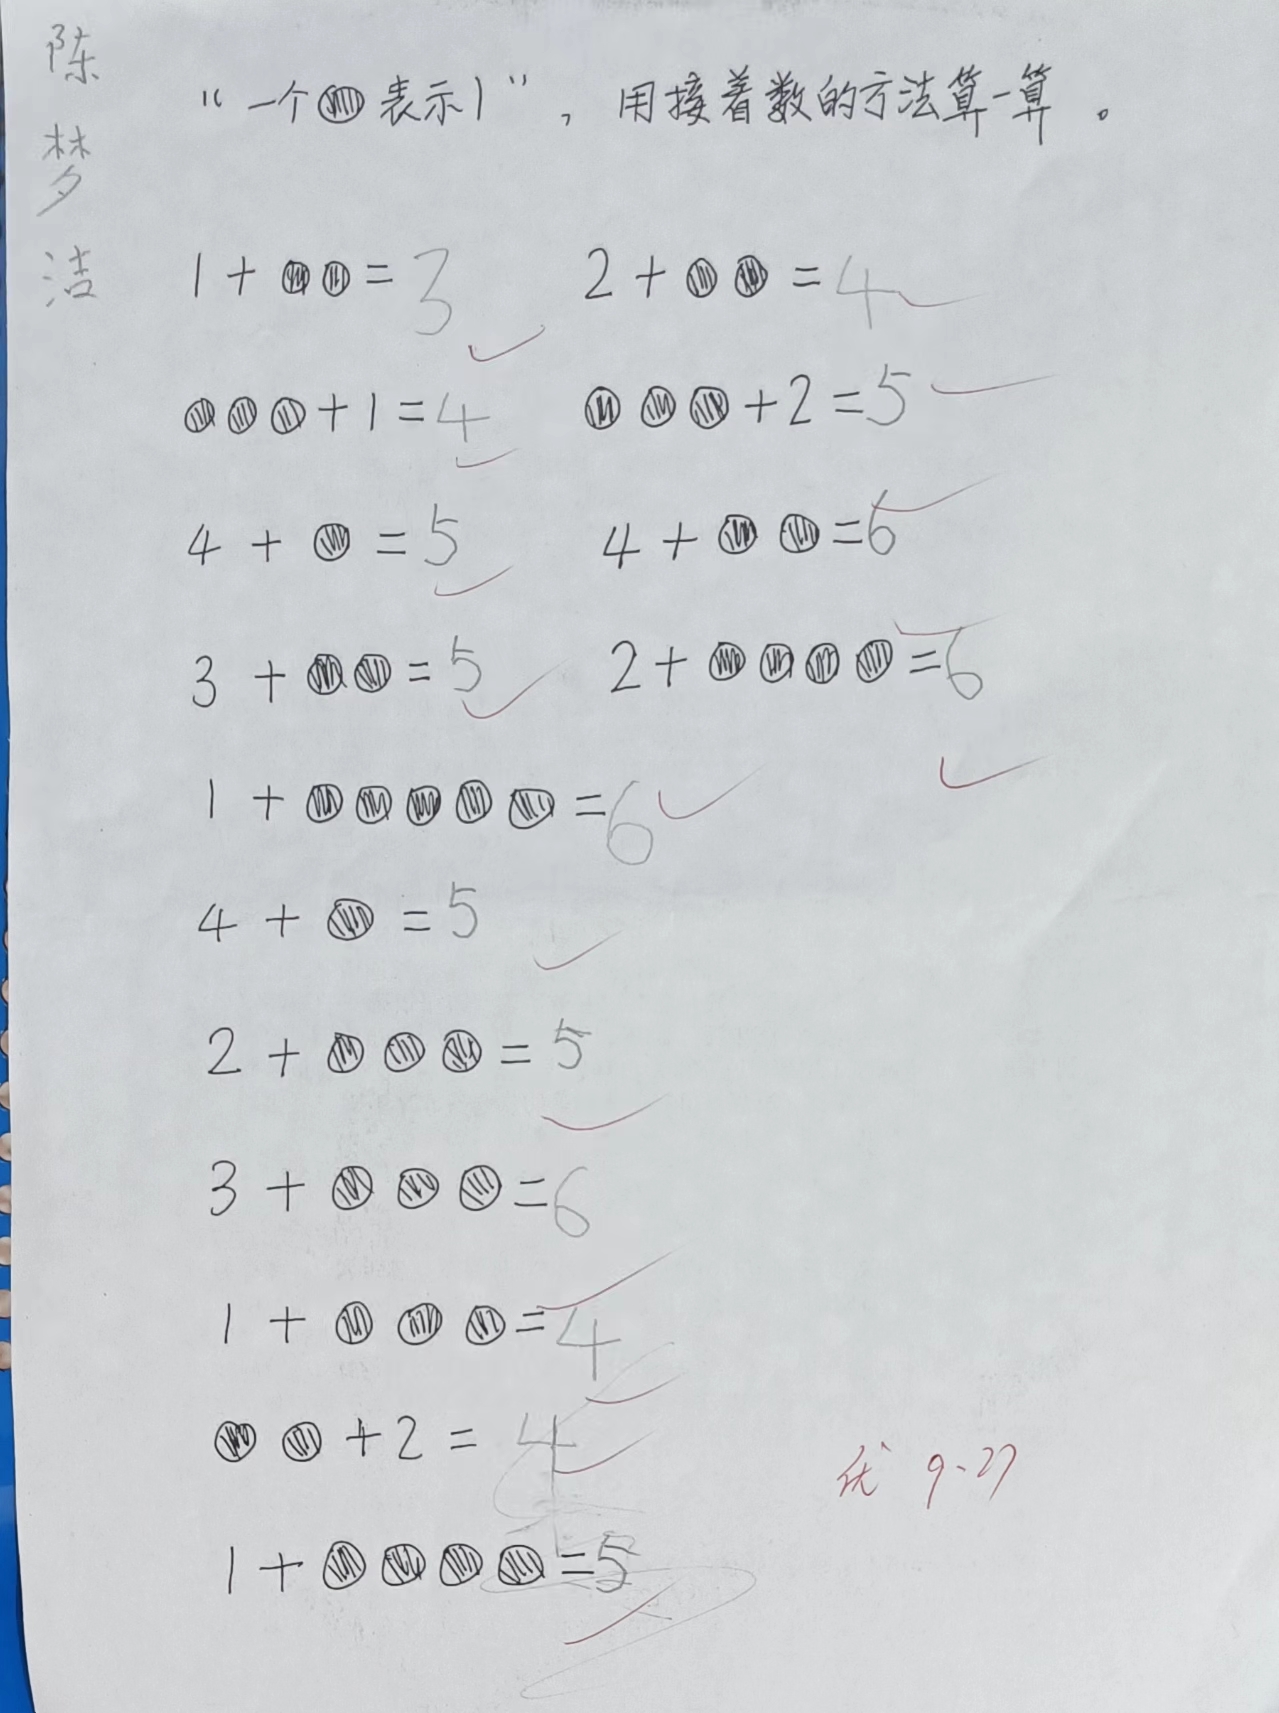 陈梦洁
“一个●表示1”，用接着数的方法算一算。
1+●●=3 2+●●=4
●●●+1=4 ●●●+2=5
4+●=5 4+●●=6
3+●●=5 2+●●●●=6
1+●●●●●=6
4+●=5
2+●●●=5
3+●●●=6
1+●●●=4
●●+2=4
1+●●●●=5
优 9.27